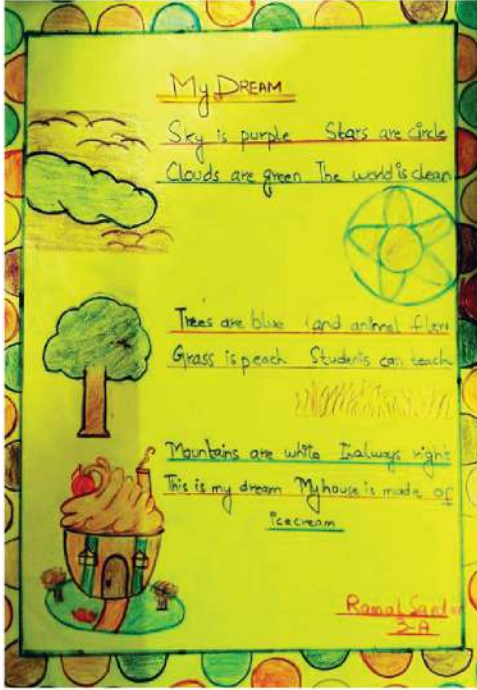 My DREAM
Sky is purple Stars are circle
Clouds are green The world is clean
Trees are blue land animal flew
Grass is peach Students can teach
Mountains are white I always right
This is my dream My house is made of
icecream
Ramal
3-A